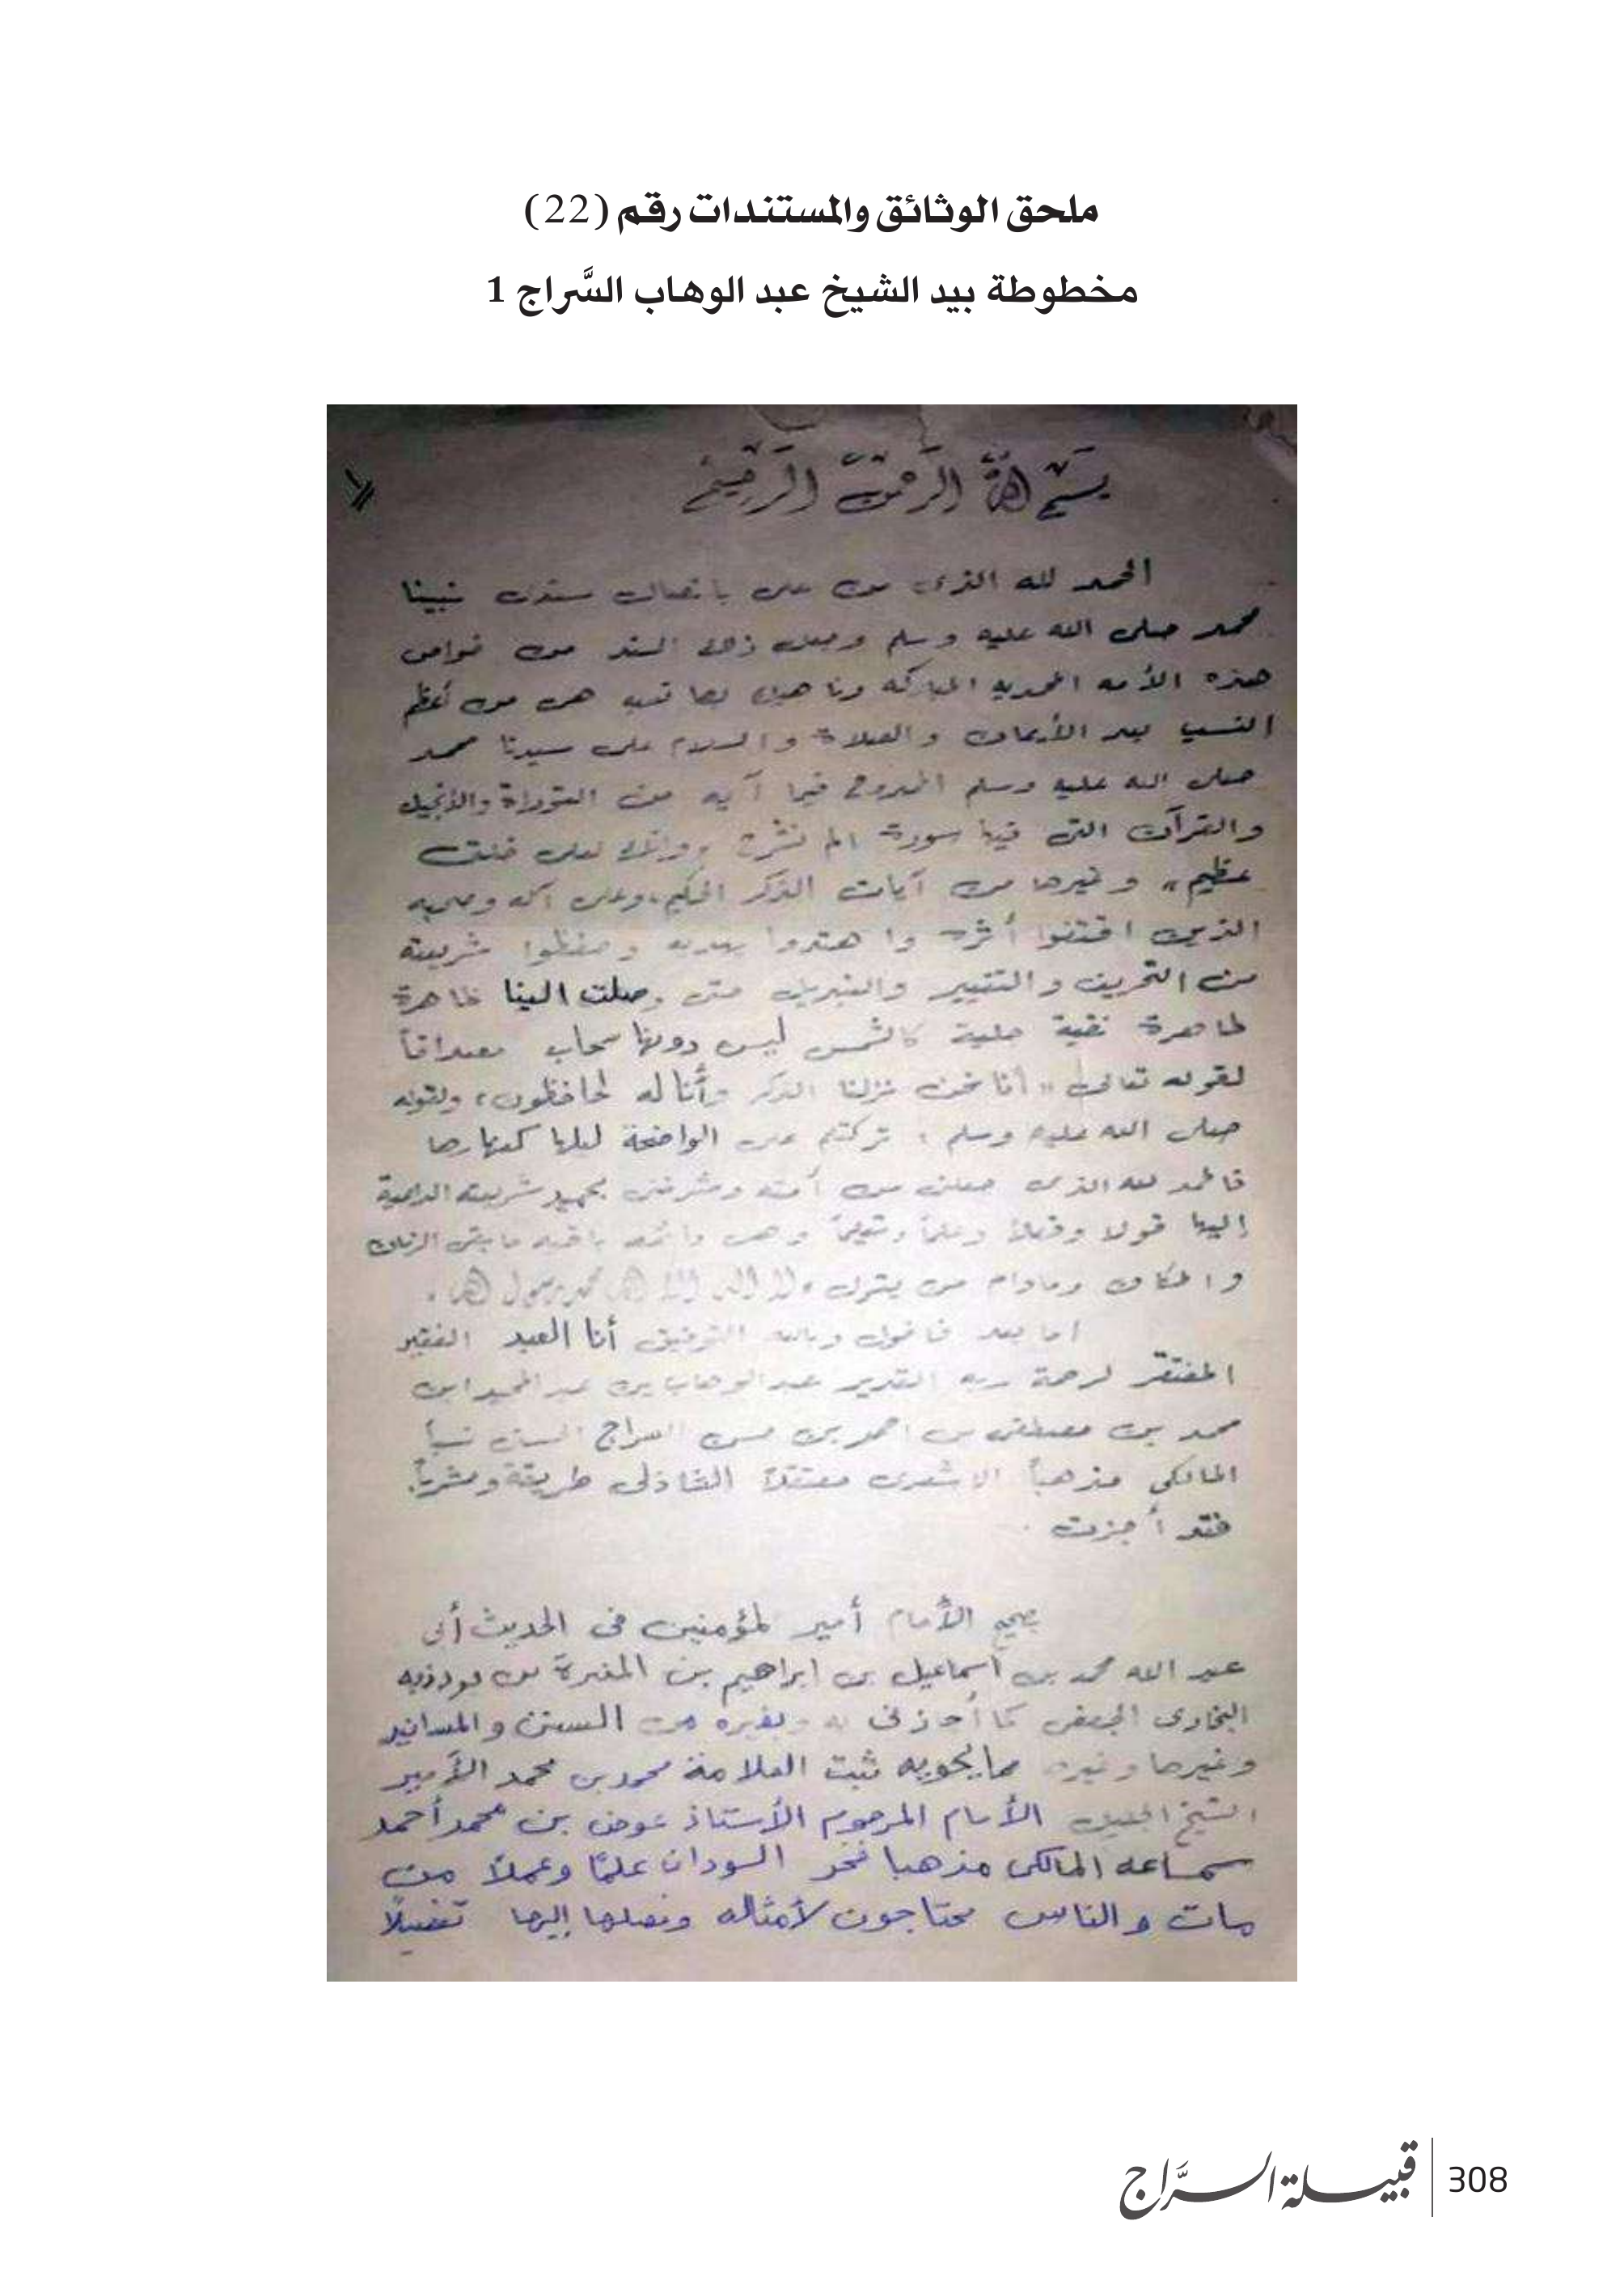 ملحق الوثائق والمستندات رقم (22)
مخطوطة بيد الشيخ عبد الوهاب السَّراج 1
١
بسم الله الرحمن الرحيم
الحمد لله الذي من على باتصال سندى نبينا
محمد صلى الله عليه وسلم وجعل ذلك السند من خواص
هذه الأمه المحمديه المباركه وناهيك بها هى من أعظم
النسب بعد الأيمان والصلاة والسلام على سيدنا محمد
صلى الله عليه وسلم الممدوح فيما آيه من التوراة والأنجيل
والقرآن التى فيها سورة الم نشرح وانك لعلى خلق
عظيم" وغيرها من آيات الذكر الحكيم، وعلى آله وصحبه
الذين اقتفوا أثره واهتدوا بهديه وحفظوا شريعته
من التحريف والتغيير والتبديل حتى وصلت الينا ظاهرة
طاهرة نقية جلية كالشمس ليس دونها سحاب مصداقاً
لقوله تعالى "انا نحن نزلنا الذكر وأنا له لحافظون، ولقوله
صلى الله عليه وسلم : تركتم على الواضحة ليلها كنهارها
فالحمد لله الذى جعلنى من أمته وشرفنى شريعته الداعية
إليها قولا وفعلاً وعلماً وتعليماً وهى باقيه ما بقى الزمان
والمكان ومادام من يقول "لا اله الا الله محمد رسول الله".
اما بعد فاقول وبالله التوفيق أنا العبد الفقير
المفتقر لرحمة ربه القدير عبد الوهاب بن عبد المجيد ابن
محمد بن مصطفى بن احمد بن حسن السراج نسباً
المالكى مذهباً الاشعرى معتقداً الشاذلى طريقة ومشرباً.
فقد أجزت
صحيح الأمام أمير المؤمنين فى الحديث أبى
عبد الله محمد بن أسماعيل بن ابراهيم بن المغيرة بن بردزبه
البخارى الجعفى كما أجازنى به وبغيره من السنن والمسانيد
وغيرها وغيره مما يحويه ثبت العلامة محمد بن محمد الأمير
الشيخ الجليل الأمام المرحوم الأستاذ عوض بن محمد أحمد
سماعه المالكى مذهبا فخر السودان علمًا وعملاً من
مات والناس محتاجون لأمثاله ونصلها إليها تفصيلاً
308
قبيلة السرَّاج